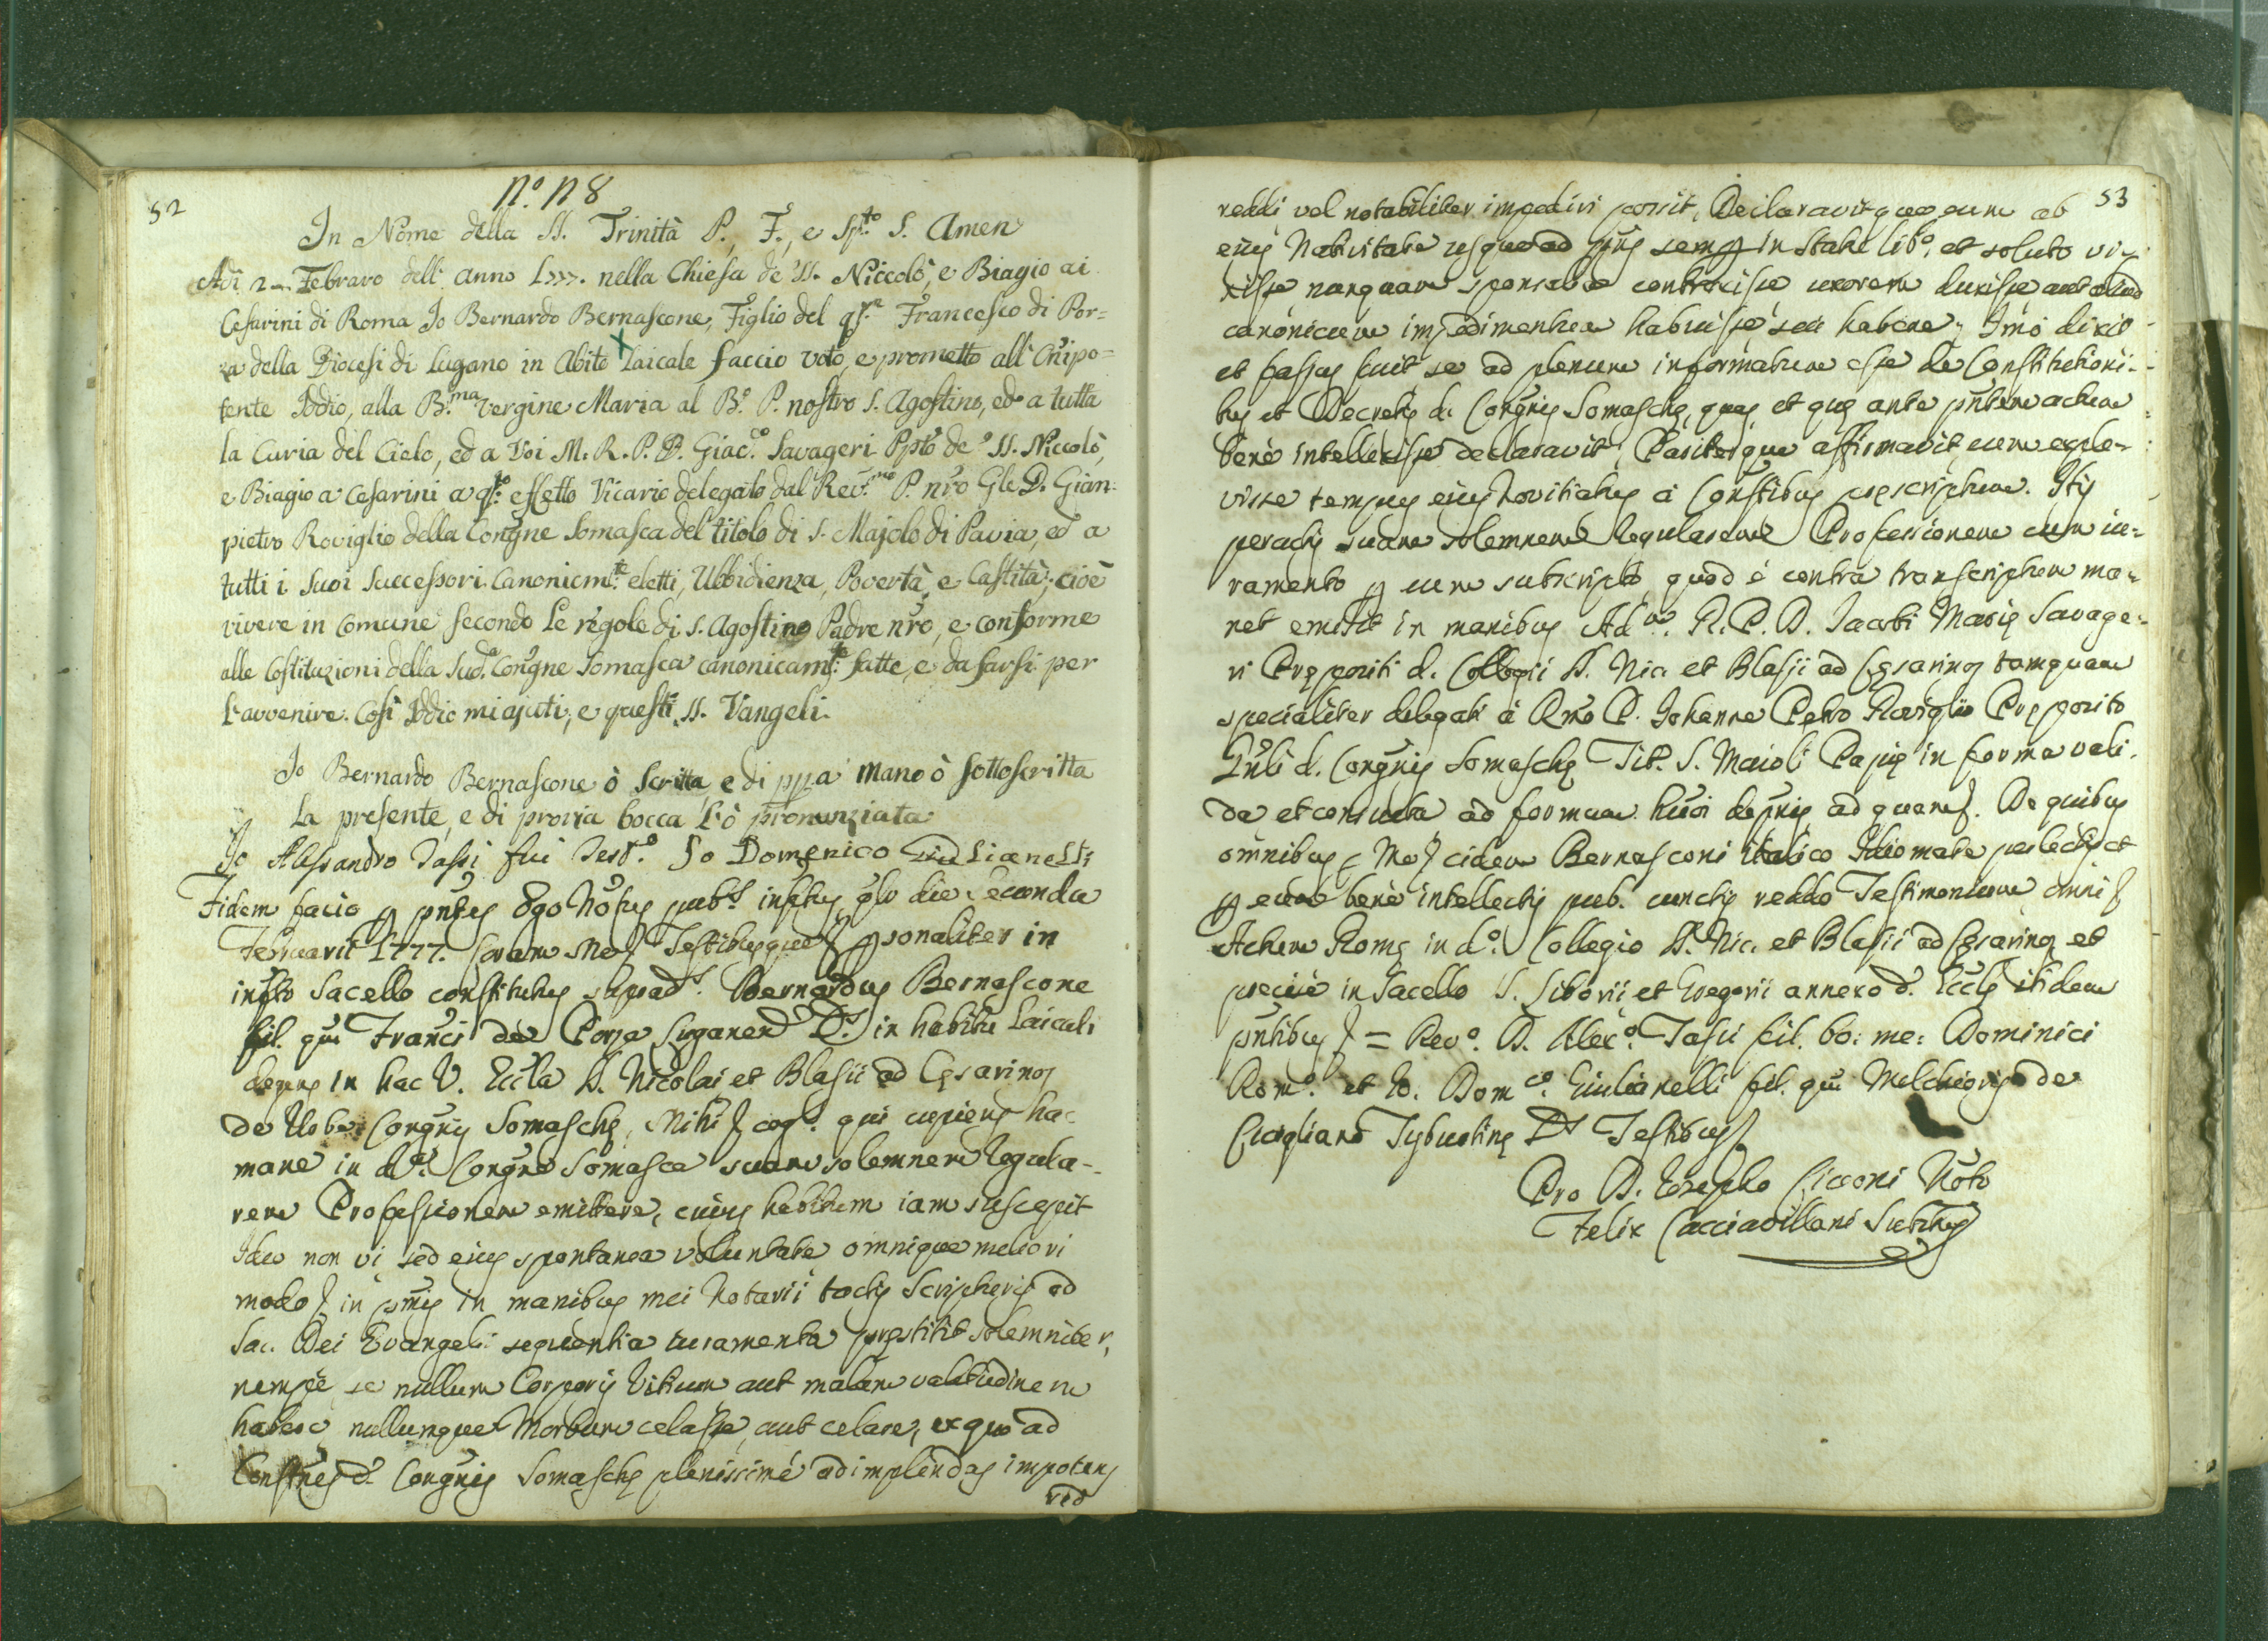 52
N.º N 8
In Nome della SS. Trinità P., F., e Sp.to S. Amen
Adi 2 Febraro dell'anno 1777. nella Chiesa de' SS. Niccolò, e Biagio ai
Cesarini di Roma Io Bernardo Bernascone, Figlio del q.m Francesco di Por=
za della Diocesi di Lugano in Abito Laicale faccio voto, e prometto all'Onipo=
tente Iddio, alla B.ma Vergine Maria al B.º P. nostro S. Agostino, ed a tutta
la Curia del Cielo, ed a Voi M. R. P. D. Giac.º Savageri Ppto de' SS. Niccolò,
e Biagio a Cesarini a q.to effetto Vicario delegato dal Rev.mo P. nro Gle D. Gian=
pietro Roviglio della Congne Somasca del titolo di S. Majolo di Pavia, ed a
tutti i suoi Successori Canonicm.te eletti, Ubbidienza, Povertà, e Castità; cioè
vivere in Comune secondo Le regole di S. Agostino Padre nro, e conforme
alle Costituzioni della Sud.a Congne Somasca canonicam.te fatte, e da farsi per
l'avvenire. Così Iddio mi ajuti, e questi SS. Vangeli.
Io Bernardo Bernascone ò Scritta, e di ppa mano ò sottoscritta
La presente, e di propria bocca l'ò pronunziata
Io Alessandro Tassi fui Test.º Io Domenico Giulianelli
Fidem facio p pntes Ego Notus pub.s infttus qlr die Secunda
Februarii 1777. Coram Me Testibusque psonaliter in
infto Sacello constitutus suprad.s Bernardus Bernascone
fil. qm Franci de Porza Luganen D.s in habitu Laicali
degens in hac V. Eccla SS. Nicolai et Blasii ad Cęsarinos
de Urbe Congnis Somaschę, Mihi cog.s qui cupiens hac
mane in d.a Congne Somasca suam solemnem Regula-
rem Professionem emittere, cuius habitum iam suscepit
Ideo non vi sed eius spontanea voluntate omnique meliori
modo in pmis in manibus mei Notarii tactis Scripturis ad
Sac. Dei Evangeli sequentia iuramenta pręstitit solemniter,
nempè se nullum Corporis Vitium aut malam valetudinem
habere nullumque Morbum celasse, aut celare, ex quo ad
Constnes d. Congnis Somaschę plenissimè adimplendas impotens
red
53
reddi vel notabiliter impediri possit, Declaravitque eum ab
eius Nativitate usque ad pns semp in statu lib.º et soluto vi=
xisse nunquam sponsalia contraxisse uxorem duxisse aut aliud
canonicum impedimentum habuisse seu habere; Imò dixit
et fassus fuit se ad plenum informatum esse de Constitutioni-
bus et Decretis d. Congnis Somaschę, quas et quę ante pntem actum
benè intellexisse declaravit; Pariterque affirmavit eum exple-
visse tempus eius Novitiatus à Constibus pręscriptum. Itis
peractis suam solemnem Regularem Professionem cum iu=
ramento p eum subscripto quod è contra transcriptum ma=
net emisit in manibus Ad.m R. P. D. Iacobi Marię Savage=
ri Prępositi d. Collegii SS. Nic. et Blasii ad Cęsarinos tamquam
specialiter delegati à Rmo P. Iohanne Petro Roviglio Pręposito
Gnli d. Congnis Somaschę Tit. S. Maioli Papię in forma vali-
da et consueta ad formam huoi depnis ad quam. De quibus
omnibus Me eidem Bernasconi italico Idiomate perlectis et
p eum benè intellectis pub. cunctis reddo Testimonium omni
Actum Romę in d.º Collegio SS. Nic. et Blasii ad Cęsarinos et
precisè in Sacello S. Liborii et Gregorii annexo d. Ecclę itidem
pntibus = Rev.º D. Alex.º Tassi fil. bo: me: Dominici
Rom.º et Io. Dom.co Giulianelli fil. qm Melchioris de
Cicigliano Tyburtinę D.s Testibus
Pro D. Iosepho Cicconi Noto
Felix Cacciavillani Subttus